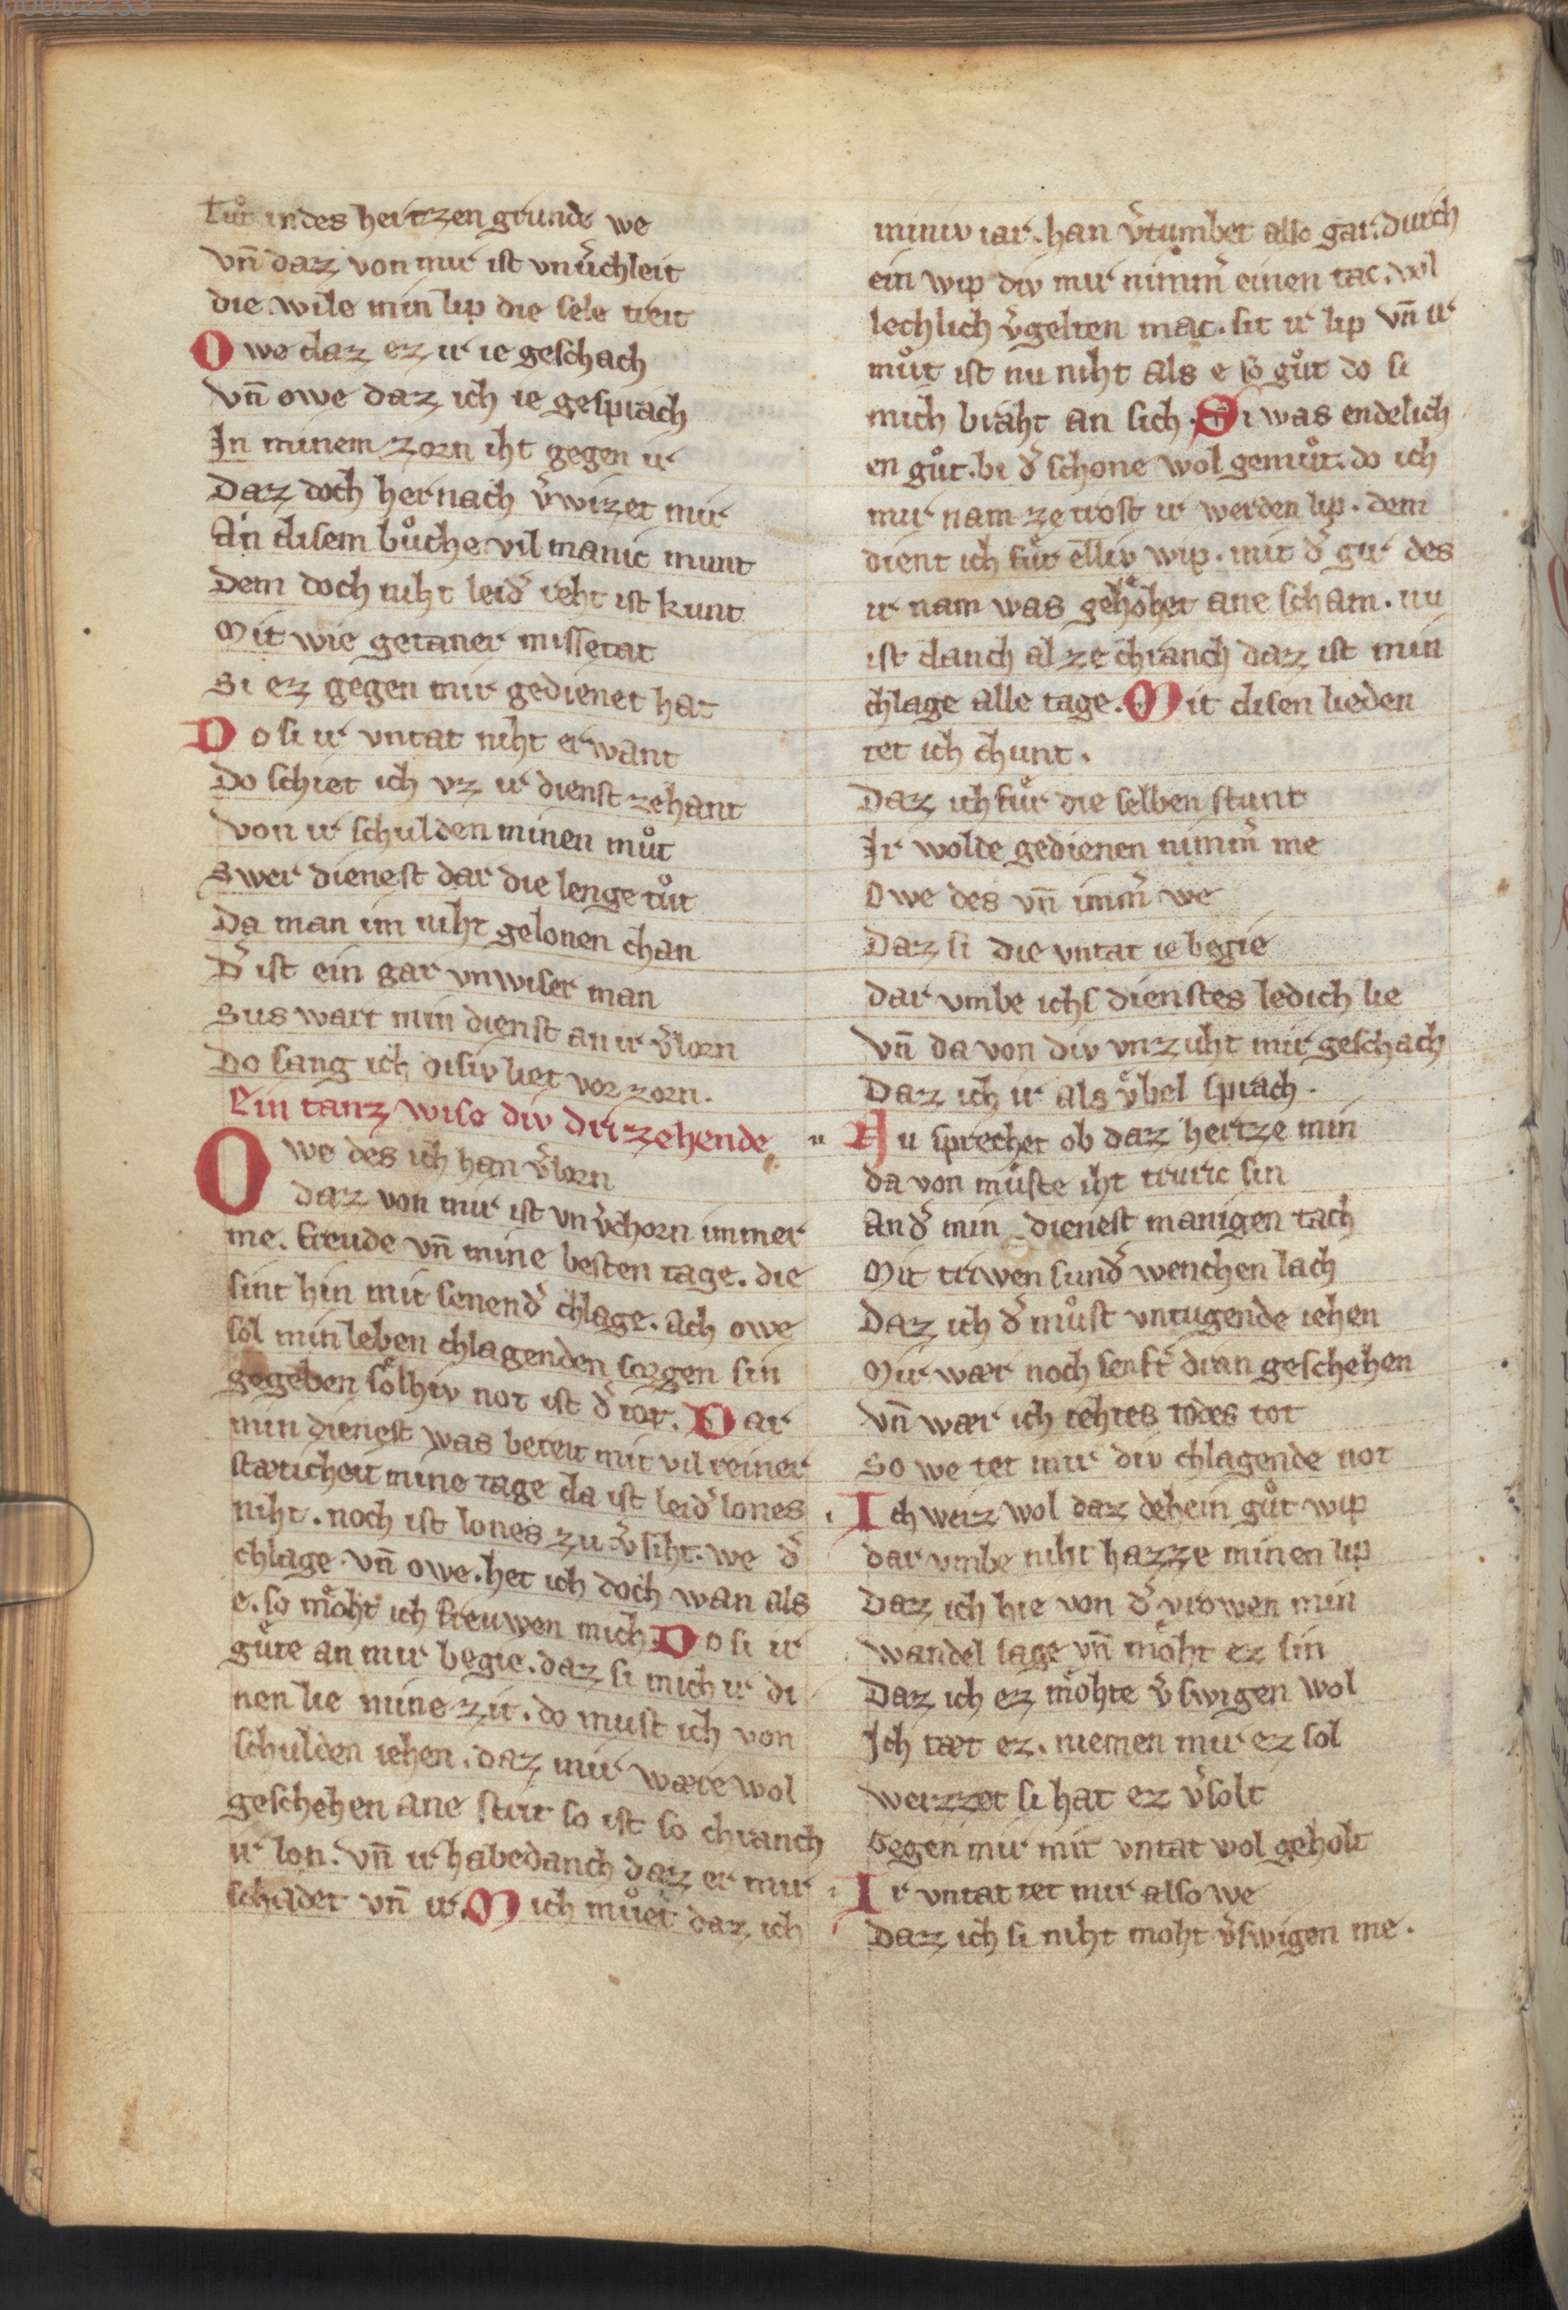 00002233
Tuͦt in des hertzen grunde we
Vn̄ daz von mir ist vnv̓chleit
die wile min lip die sele treit
Owe daz ez ir ie geschach
Vn̄ owe daz ich ie gesprach
In minem zorn iht gegen ir
Daz doch hernach v̓wizet mir
An disem buͦche vil manic munt
Dem doch niht leid̓ reht ist kunt
Mit wie getaner missetat
Si ez gegen mir gedienet hat
Do si ir vntat niht erwant
Do schiet ich vz ir dienst zehant
Von ir schulden minen muͦt
Swer dienest dar die lenge tuͦt
Da man im niht gelonen chan
D̓ ist ein gar vnwiser man
Sus wart min dienst an ir v̓lorn
Do sang ich disiv liet vor zorn.
Ein tanz wise div drizehende
Owe des ich han v̓lorn
daz von mir ist vnv̓chorn immer
me. freude vn̄ mine besten tage. die
sint hin mit senend̓ chlage. ach owe
sol min leben chlagenden sorgen sin
gegeben soͤlhiv not ist d̓ tot. Dar
min dienst was bereit mit vil reiner
stæticheit mine tage da ist leid̓ lones
niht. noch ist lones zu v̓siht. we d̓
chlage vn̄ owe. het ich doch wan als
e. so moͤht ich freuwen mich. Do si ir
guͤte an mir begie. daz si mich ir di
nen lie mine zit. do must ich von
schulden iehen. daz mir wære wol
geschehen ane strit so ist so chranch
ir lon. vn̄ ir habedanch daz er mir
schadet vn̄ ir. Mich muͤet daz ich
miniv iar. han v̓tumbet also gar. durch
ein wip div mir nimm̓ einen tac. vol
lechlich v̓gelten mac. sit ir lip vn̄ ir
muͦt ist nu niht als e so guͦt do si
mich braht an sich. Si was endelich
en guͦt. bi d̓ schone wol gemuͦt. do ich
mir nam ze trost ir werden lip. dem
dient ich fuͤr elliv wip. mit d̓ gir des
ir nam was gehoͤhet ane scham. nu
ist danch al ze chranch daz ist min
chlage alle tage. Mit disen lieden
tet ich chunt.
Daz ich fuͤr die selben stunt
Ir wolde gedienen nimm̓ me
Owe des vn̄ imm̓ we
Daz si die vntat ie begie
dar vmbe ichs dienstes ledich lie
Vn̄ da von div vnzuht mir geschach
Daz ich ir als vͤbel sprach.
n Nu sprechet ob daz hertze min
da von muͤste iht truric sin
an d̓ min dienest manigen tach
Mit triwen sund̓ wenchen lach
Daz ich d̓ muͦst vntugende iehen
Mir wær noch senft̓ dran geschehen
Vn̄ wær ich rehtes todes tot
So we tet mir div chlagende not
i Ich weiz wol daz dehein guͦt wip
dar vmbe niht hazze minen lip
Daz ich hie von d̓ vrowen min
wandel sage vn̄ moͤht ez sin
Daz ich ez moͤhte v̓swigen wol
Ich tæt ez. niemen mir ez sol
weizzet si hat ez v̓solt
Gegen mir mit vntat wol geholt
i Ir vntat tet mir also we
Daz ich si niht moht v̓swigen me.